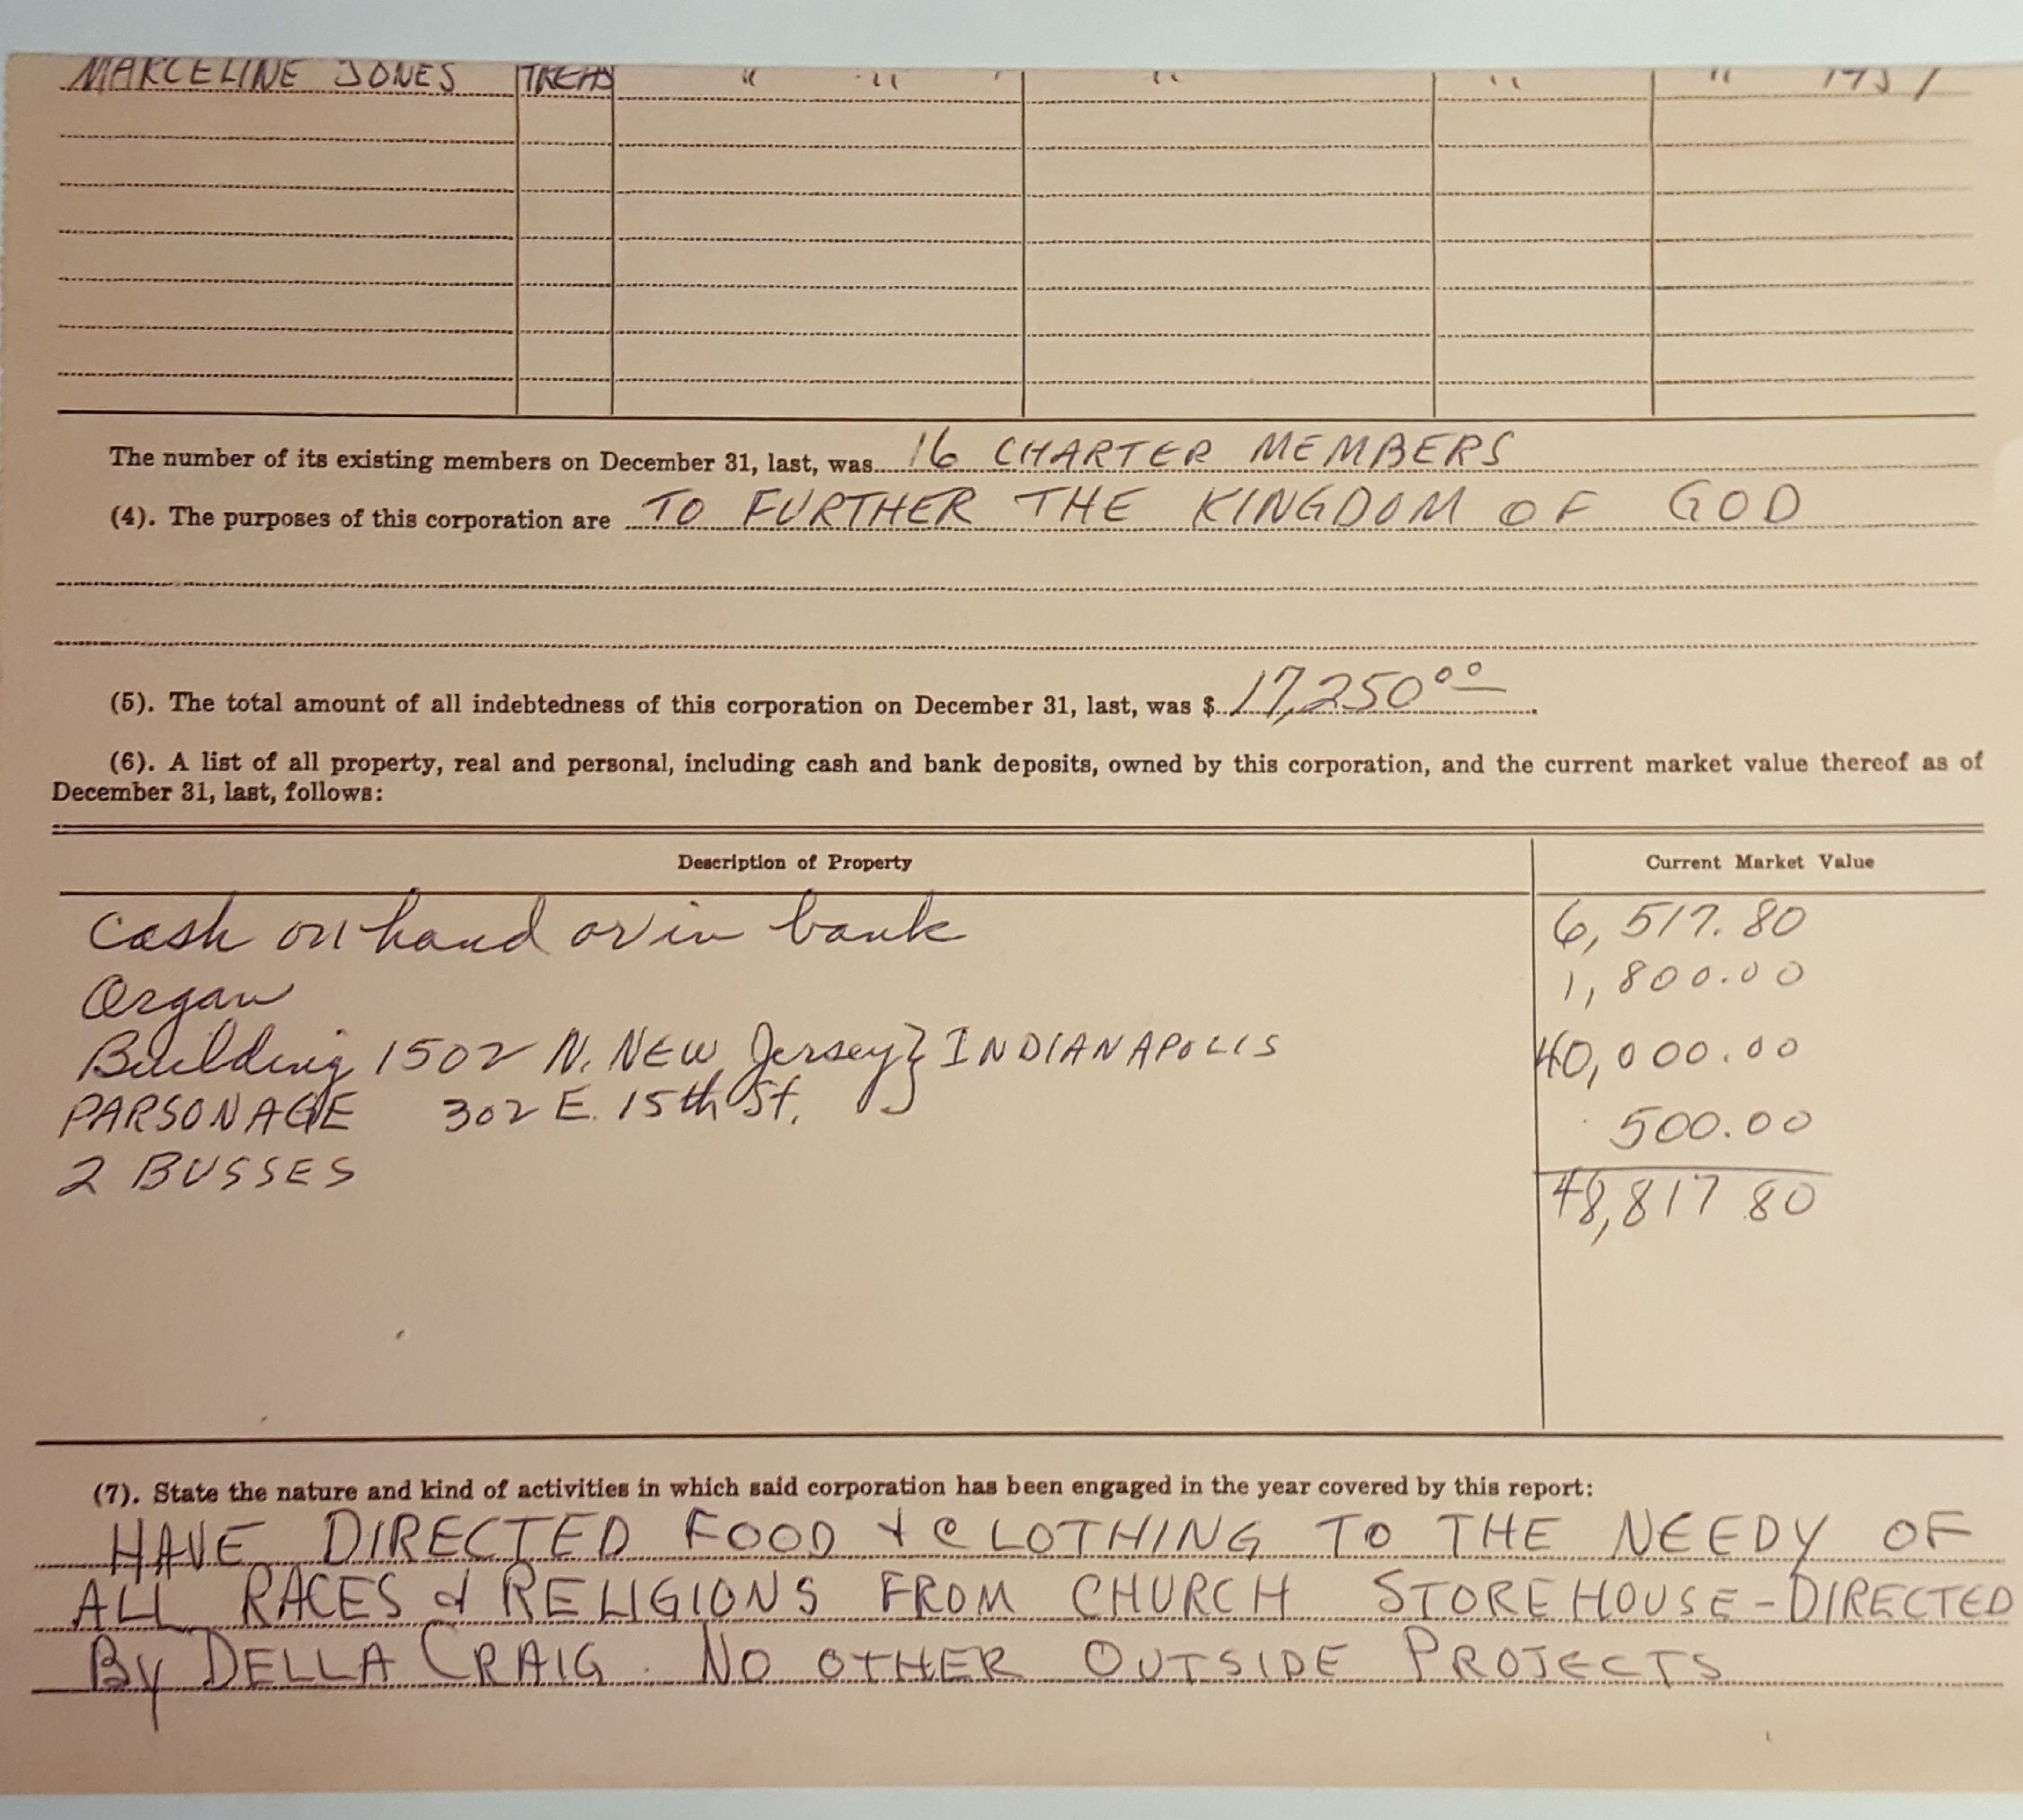 MARCELINE JONES TREAS " " " " " 1957
The number of its existing members on December 31, last, was 16 CHARTER MEMBERS
(4). The purposes of this corporation are TO FURTHER THE KINGDOM OF GOD
(5). The total amount of all indebtedness of this corporation on December 31, last, was $ 17,250 00
(6). A list of all property, real and personal, including cash and bank deposits, owned by this corporation, and the current market value thereof as of
December 31, last, follows:
Description of Property Current Market Value
Cash on hand or in bank 6,517.80
Organ 1,800.00
Building 1502 N. NEW Jersey } INDIANAPOLIS 40,000.00
PARSONAGE 302 E. 15th St. 500.00
2 BUSSES 48,817 80
(7). State the nature and kind of activities in which said corporation has been engaged in the year covered by this report:
HAVE DIRECTED FOOD + CLOTHING TO THE NEEDY OF
ALL RACES & RELIGIONS FROM CHURCH STOREHOUSE - DIRECTED
By DELLA CRAIG. NO OTHER OUTSIDE PROJECTS